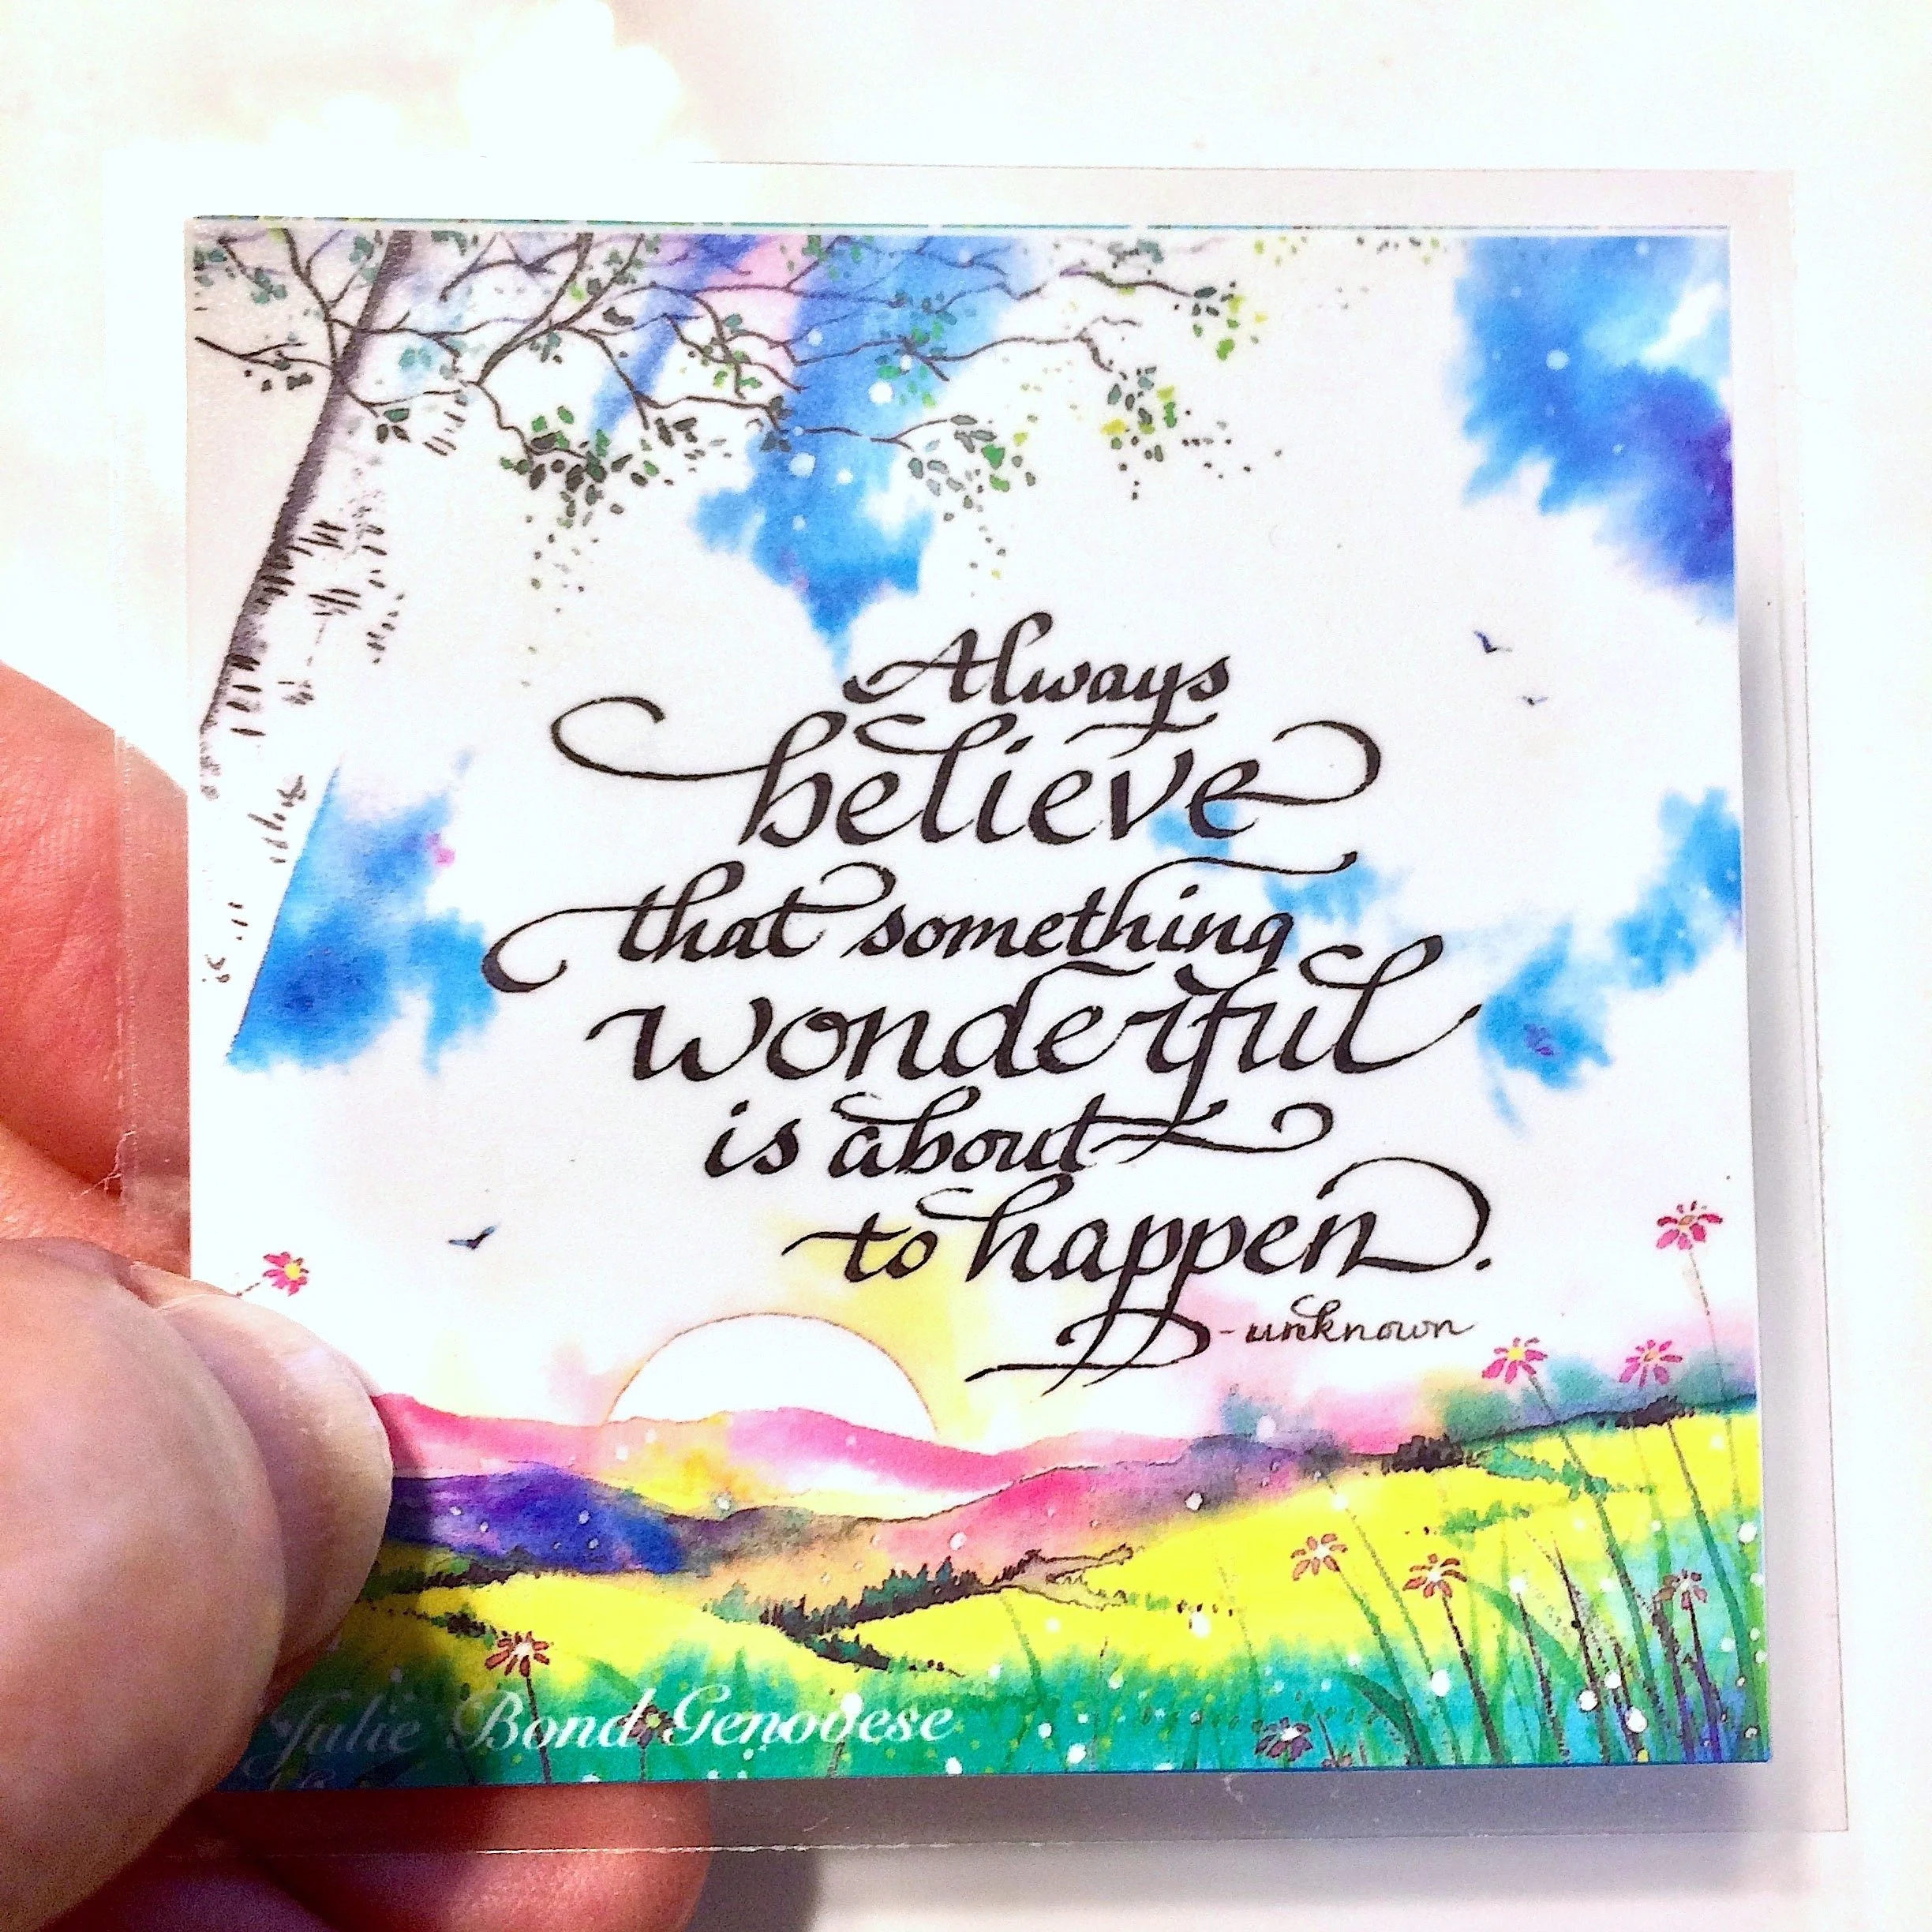 Always
believe
that something
wonderful
is about
to happen.
-unknown
Julie Bond Genovese